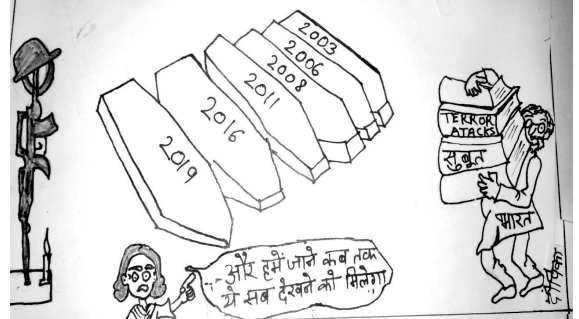 2003
2006
2008
2011
2016
2019
TERROR
ATACKS
सुबूत
भारत
और हमें जाने कब तक
ये सब देखने को मिलेगा
दीपिका